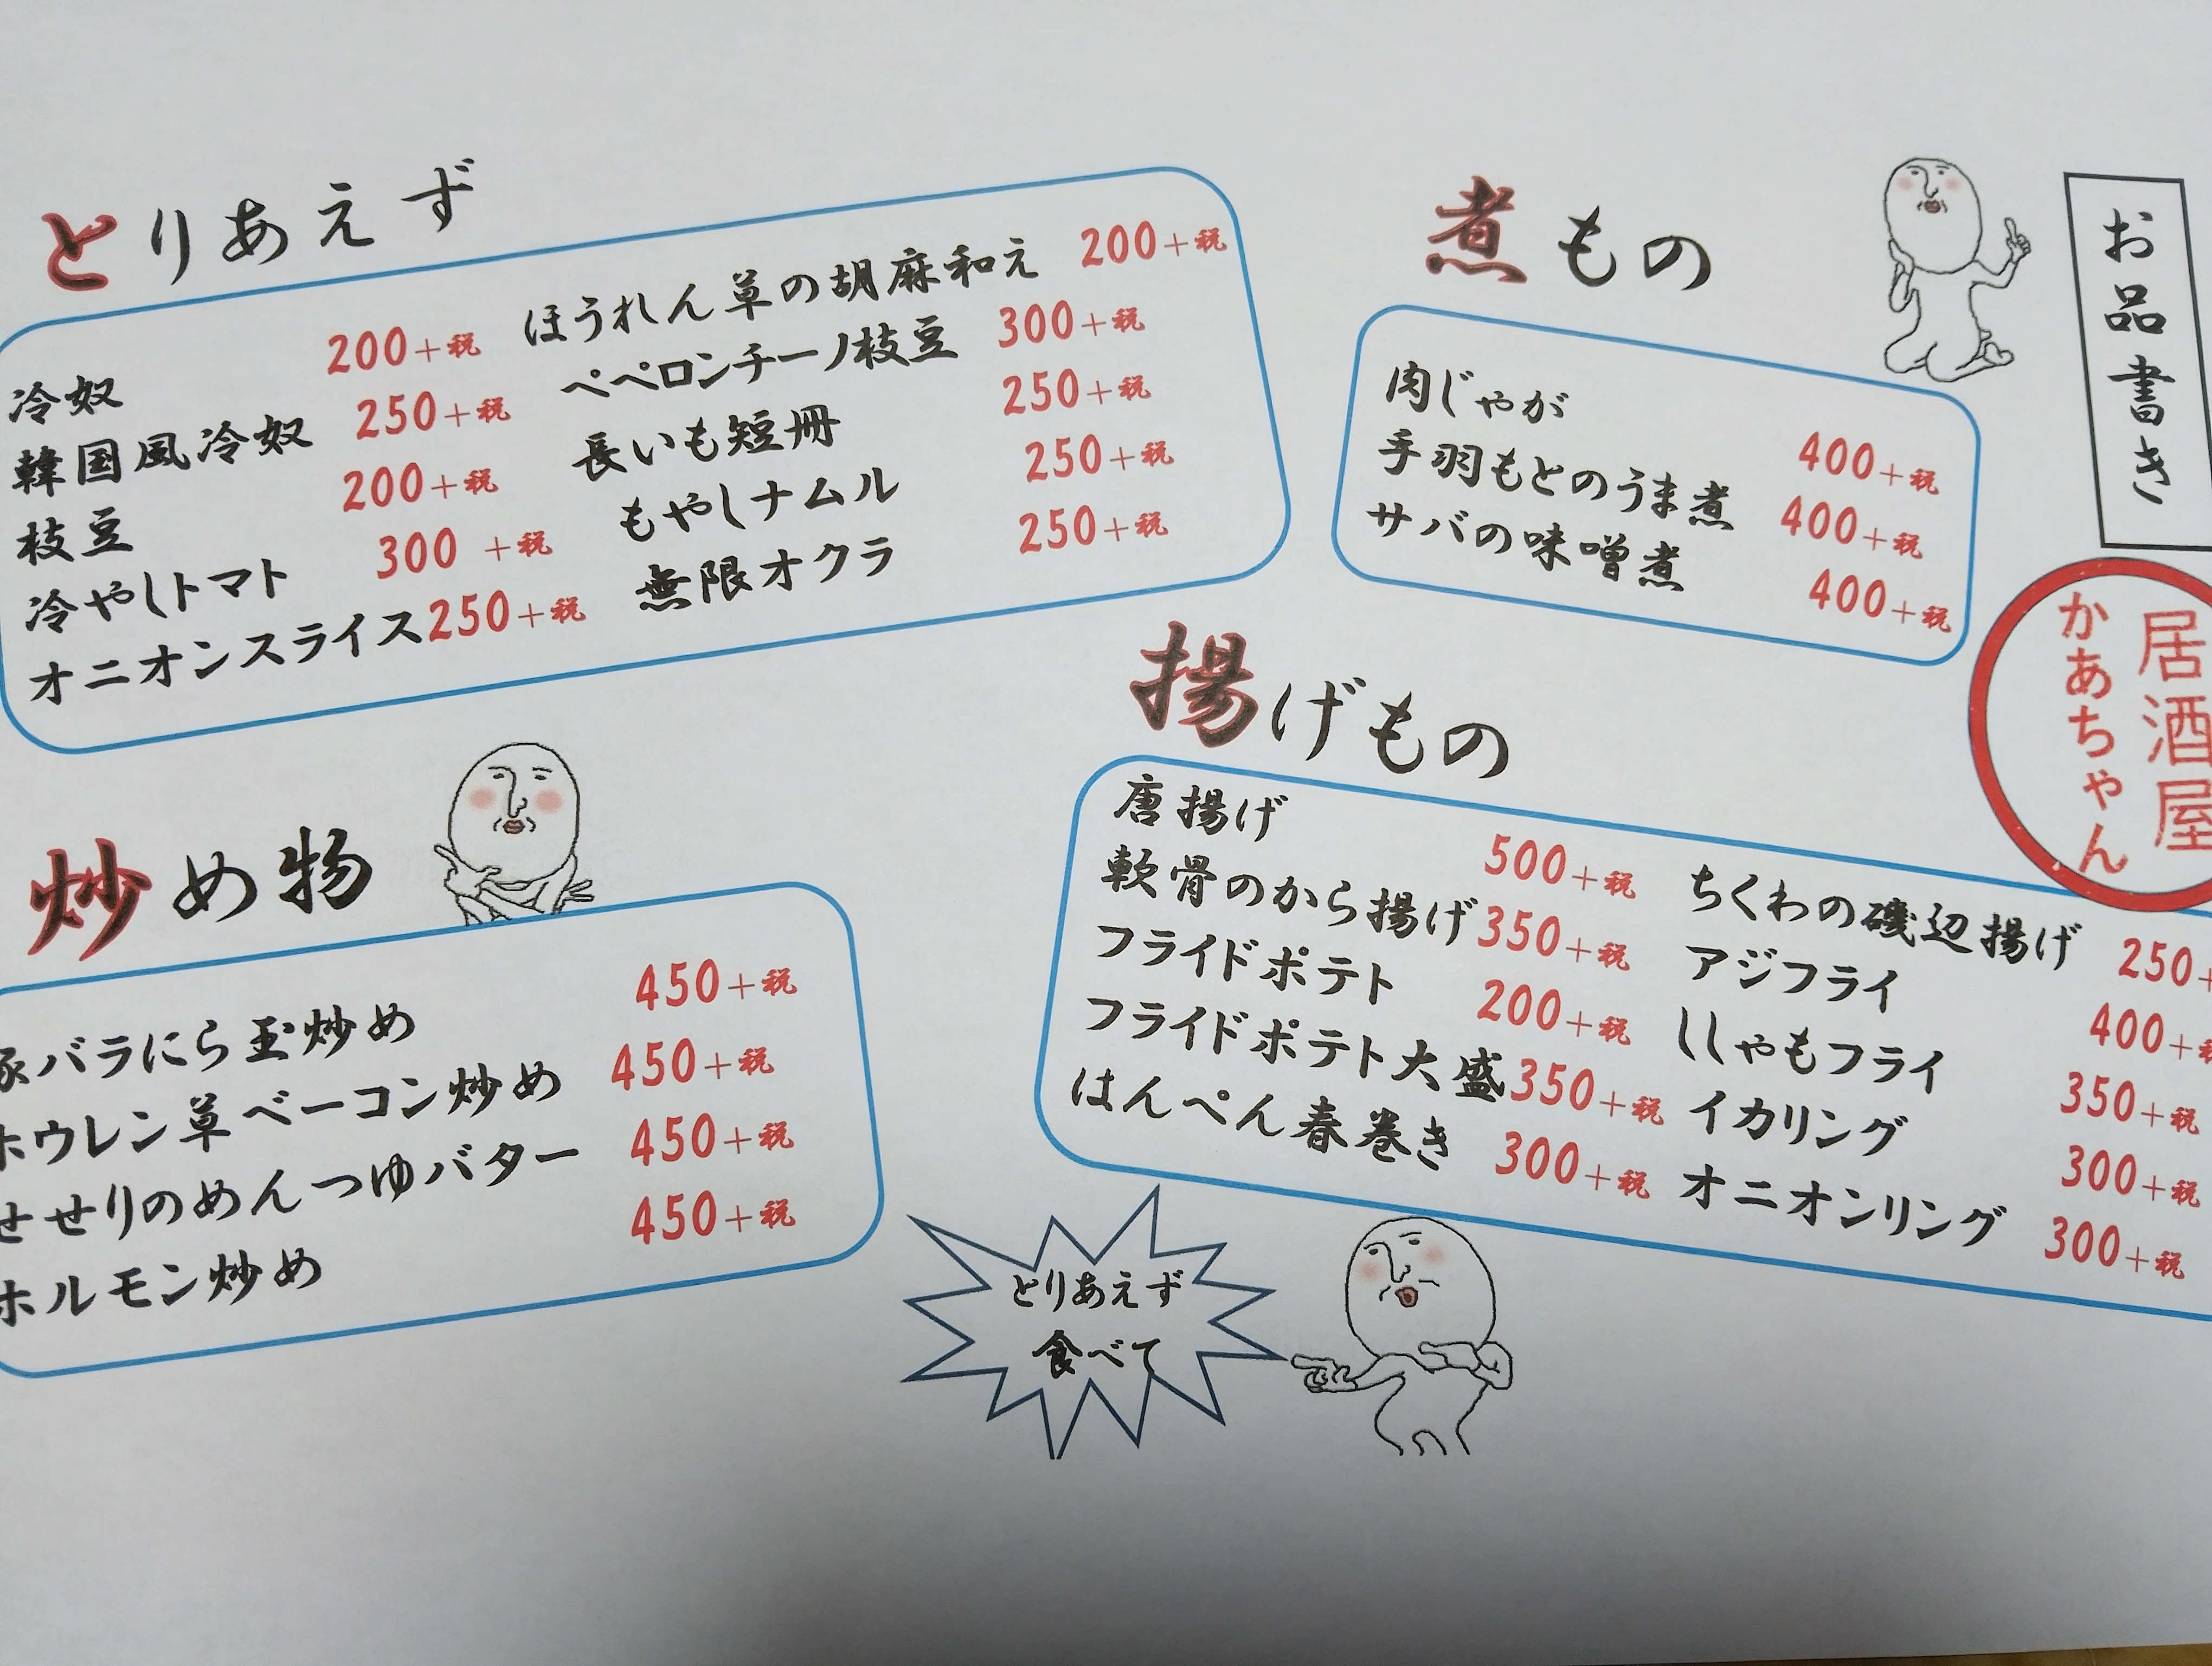 お品書き
居酒屋
かあちゃん
とりあえず
冷奴 200+税
韓国風冷奴 250+税
枝豆 200+税
冷やしトマト 300+税
オニオンスライス 250+税
ほうれん草の胡麻和え 200+税
ペペロンチーノ枝豆 300+税
長いも短冊 250+税
もやしナムル 250+税
無限オクラ 250+税
煮もの
肉じゃが 400+税
手羽もとのうま煮 400+税
サバの味噌煮 400+税
揚げもの
唐揚げ 500+税
軟骨のから揚げ 350+税
フライドポテト 200+税
フライドポテト大盛 350+税
はんぺん春巻き 300+税
ちくわの磯辺揚げ 250+
アジフライ 400+税
ししゃもフライ 350+税
イカリング 300+税
オニオンリング 300+税
炒め物
豚バラにら玉炒め 450+税
ホウレン草ベーコン炒め 450+税
せせりのめんつゆバター 450+税
ホルモン炒め 450+税
とりあえず
食べて